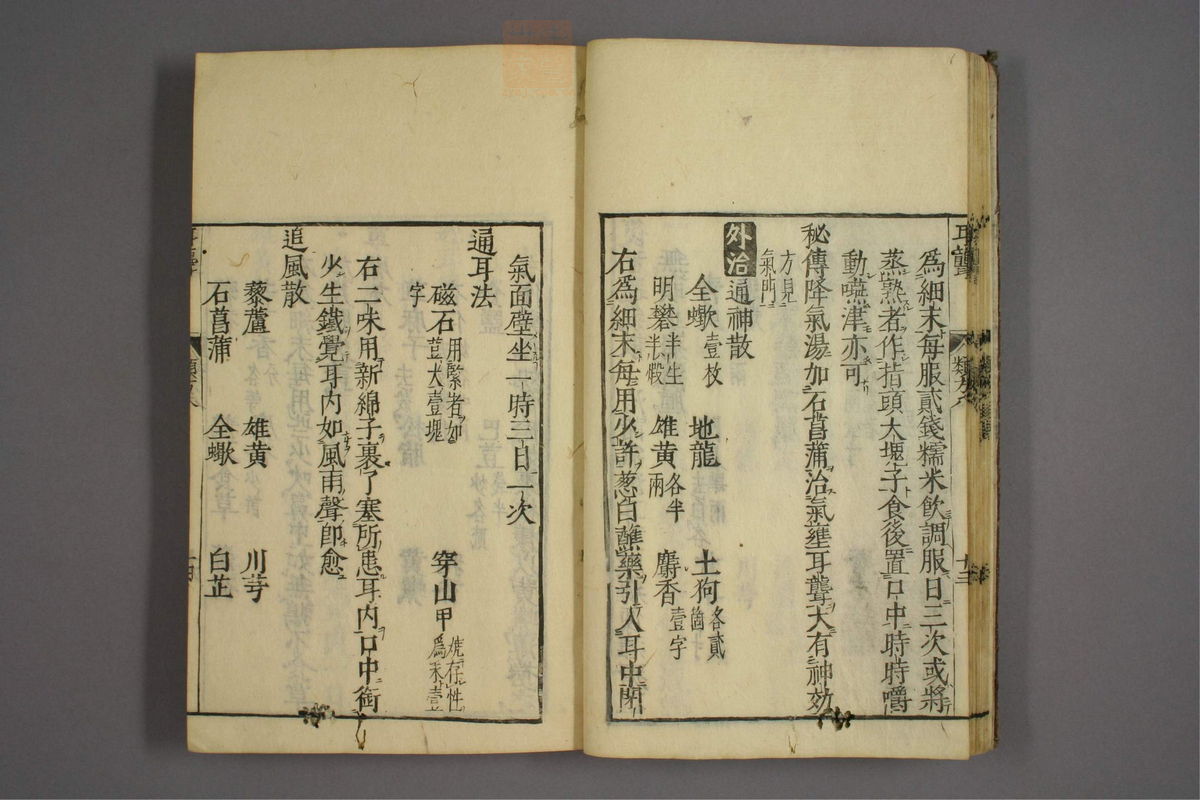 耳聾
類方
十三
為細末每服貳錢糯米飲調服日三次或將
蒸熟者作指頭大塊子食後置口中時時嚼
動嚥津亦可
秘傳降氣湯加石菖蒲治氣壅耳聾大有神効
方見
氣門
外治 通神散
全蠍壹枚 地龍 土狗各貳箇
明礬半生半煆 雄黃各半兩 麝香壹字
右為細末每用少許葱白蘸藥引入耳中閉
氣面壁坐一時三日一次
通耳法
磁石用緊者如荳大壹塊 穿山甲燒存性為末壹
字
右二味用新綿子裹了塞所患耳內口中銜
少生鐵覺耳內如風雨聲即愈
追風散
藜蘆 雄黃 川芎
石菖蒲 全蠍 白芷